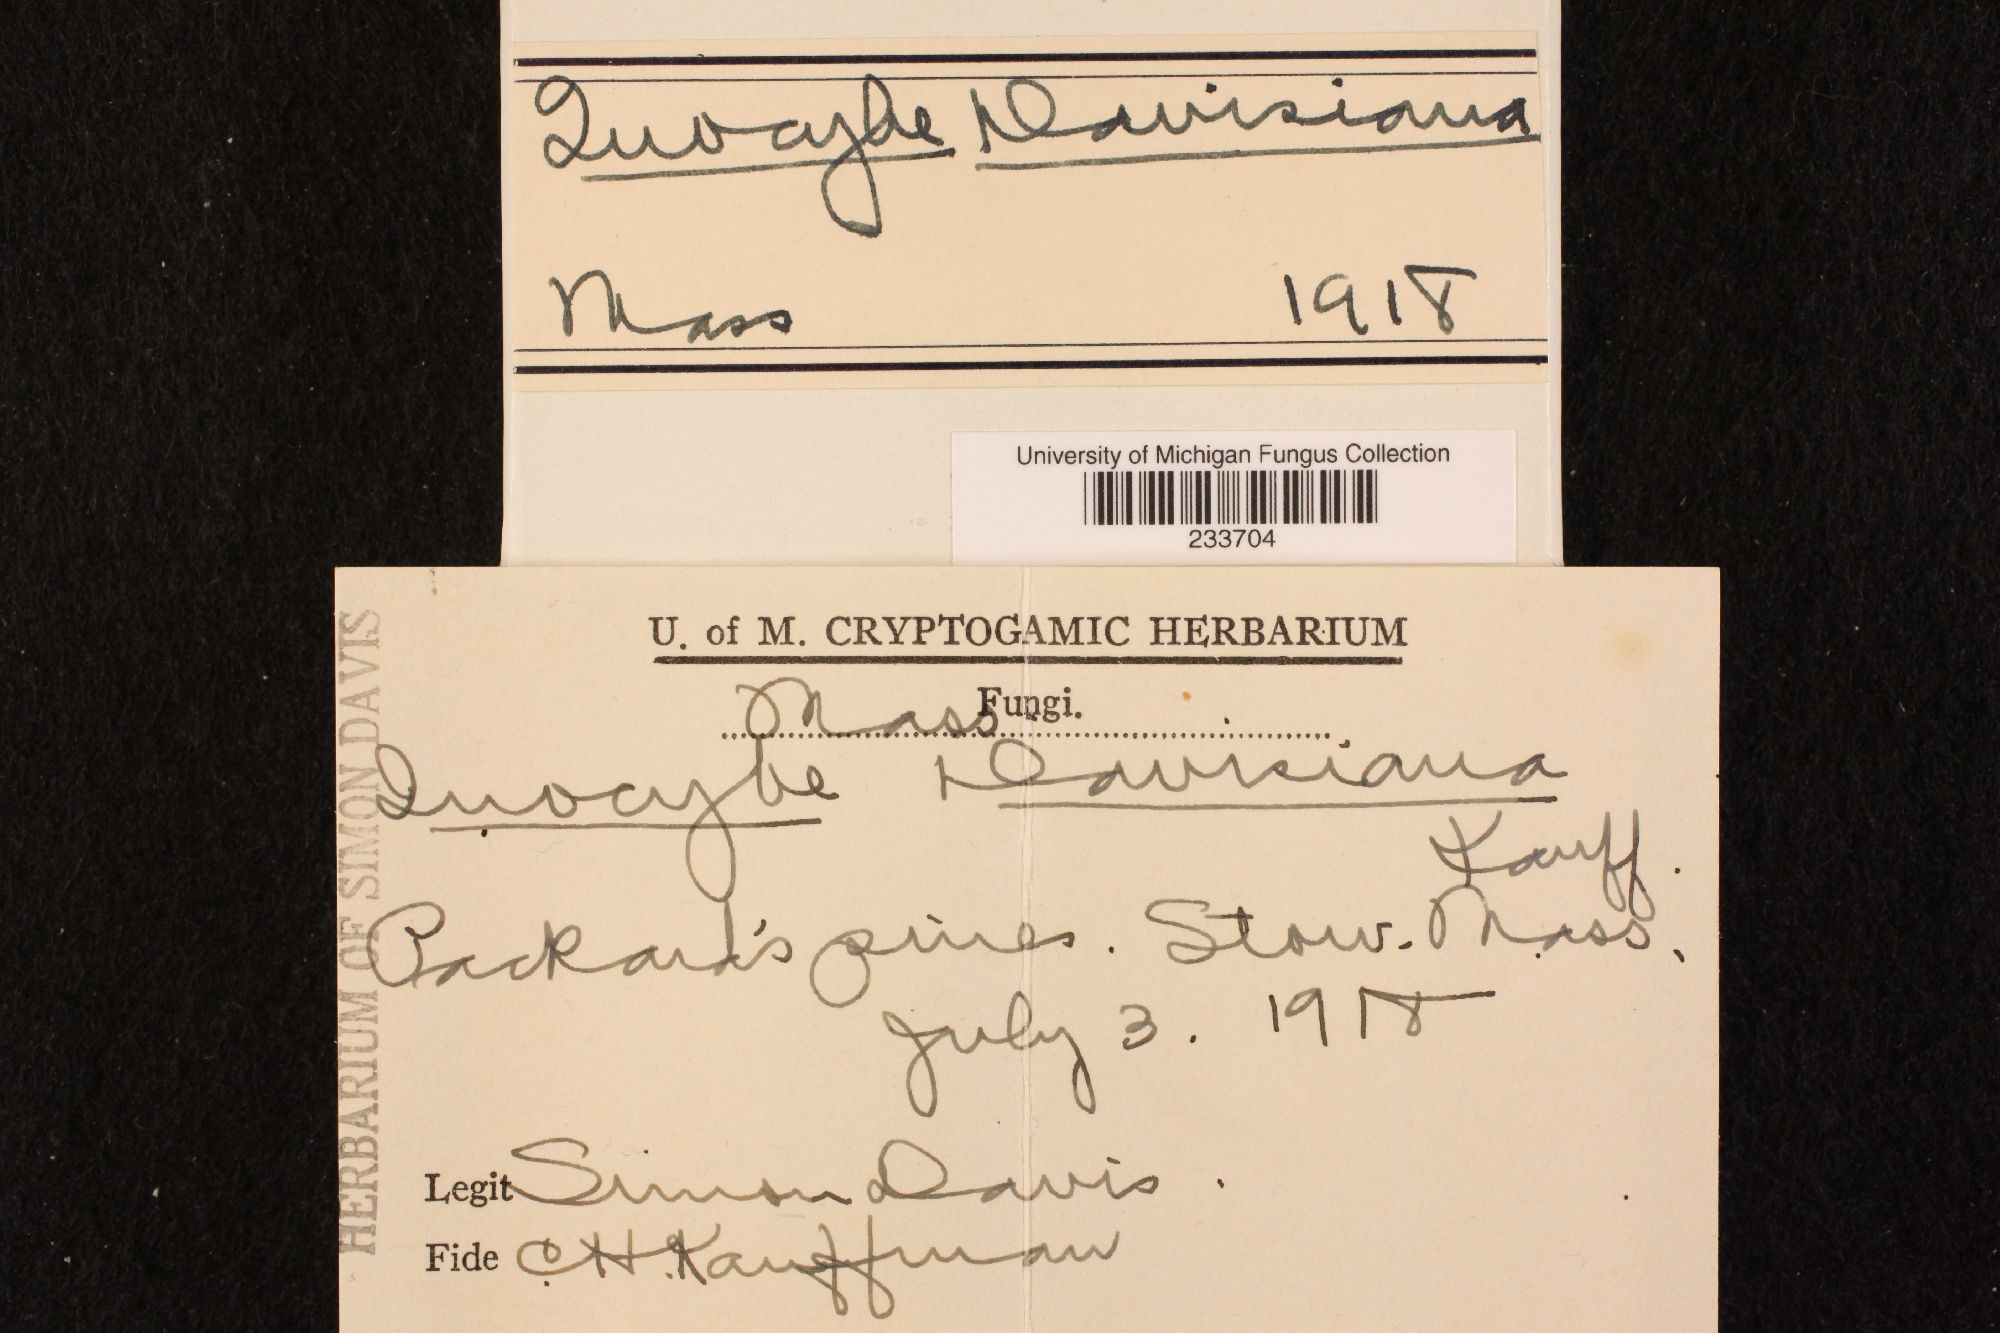 Inocybe Davisiana
Mass 1918
University of Michigan Fungus Collection
233704
HERBARIUM OF SIMON DAVIS
U. of M. CRYPTOGAMIC HERBARIUM
Fungi.
Mass
Inocybe Davisiana
Kauff.
Packard's pines. Stow. Mass.
July 3. 1918
Legit Simon Davis.
Fide C.H. Kauffman